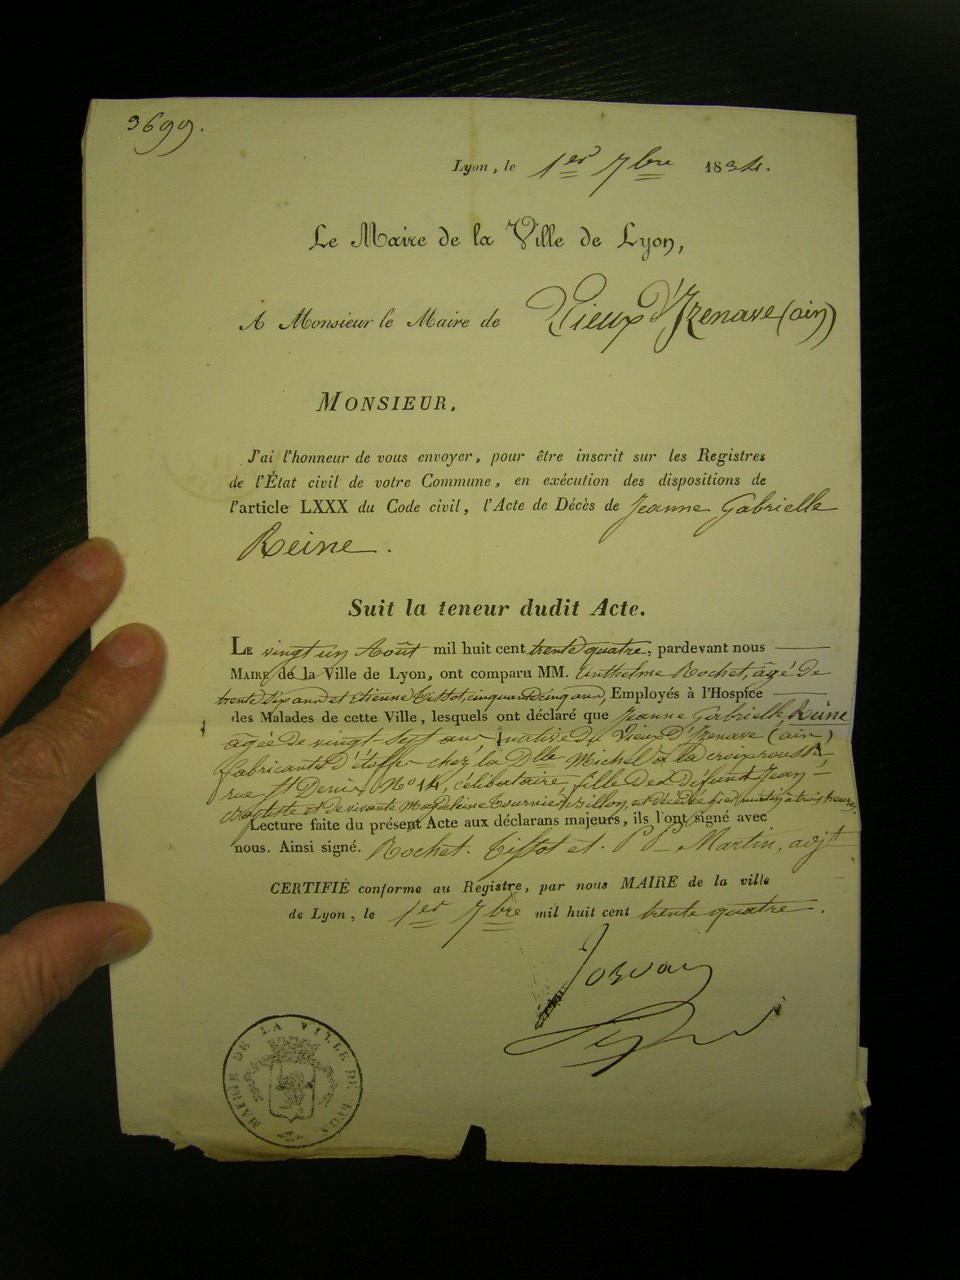 9699.
Lyon, le 1er 7bre 1834.
Le Maire de la Ville de Lyon,
A Monsieur le Maire de Vieux d'Izenave (ain)
MONSIEUR,
J'ai l'honneur de vous envoyer, pour être inscrit sur les Registres
de l'État civil de votre Commune, en exécution des dispositions de
l'article LXXX du Code civil, l'Acte de Décès de Jeanne Gabrielle
Reine.
Suit la teneur dudit Acte.
LE vingt un Août mil huit cent trente quatre, pardevant nous
MAIRE de la Ville de Lyon, ont comparu MM. Anthelme Rochet, âgé de
trente six ans et etienne Tissot, cinquante cinq ans, Employés à l'Hospice
des Malades de cette Ville, lesquels ont déclaré que Jeanne Gabrielle Reine
agée de vingt sept ans native du Vieux D'Izenave (ain)
fabricante D'étoffe chez la Dlle Michel à la croix rousse
rue St Denis No 14, célibataire, fille de défunt Jean
Baptiste et de vivante Magdeleine Tournier Billon, est décédée hier matin à trois heures
Lecture faite du présent Acte aux déclarans majeurs, ils l'ont signé avec
nous. Ainsi signé. Rochet. Tissot et. Martin, adjt
CERTIFIÉ conforme au Registre, par nous MAIRE de la ville
de Lyon, le 1er 7bre mil huit cent trente quatre.
MAIRIE DE LA VILLE DE LYON.